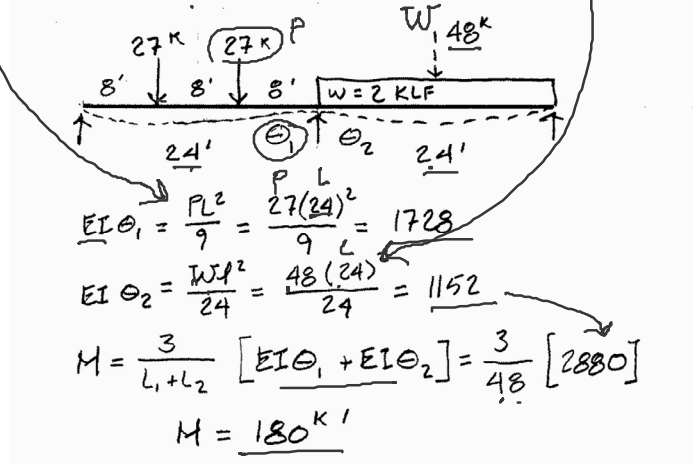 W
27ᴷ 27K P 48ᴷ
8' 8' 8' W = 2 KLF
24' Θ₁ Θ₂ 24'
P L
EI Θ₁ = PL²/9 = 27(24)²/9 = 1728
L
EI Θ₂ = Wl²/24 = 48(24)/24 = 1152
M = 3/(L₁+L₂) [EIΘ₁ + EIΘ₂] = 3/48 [2880]
M = 180ᴷ'